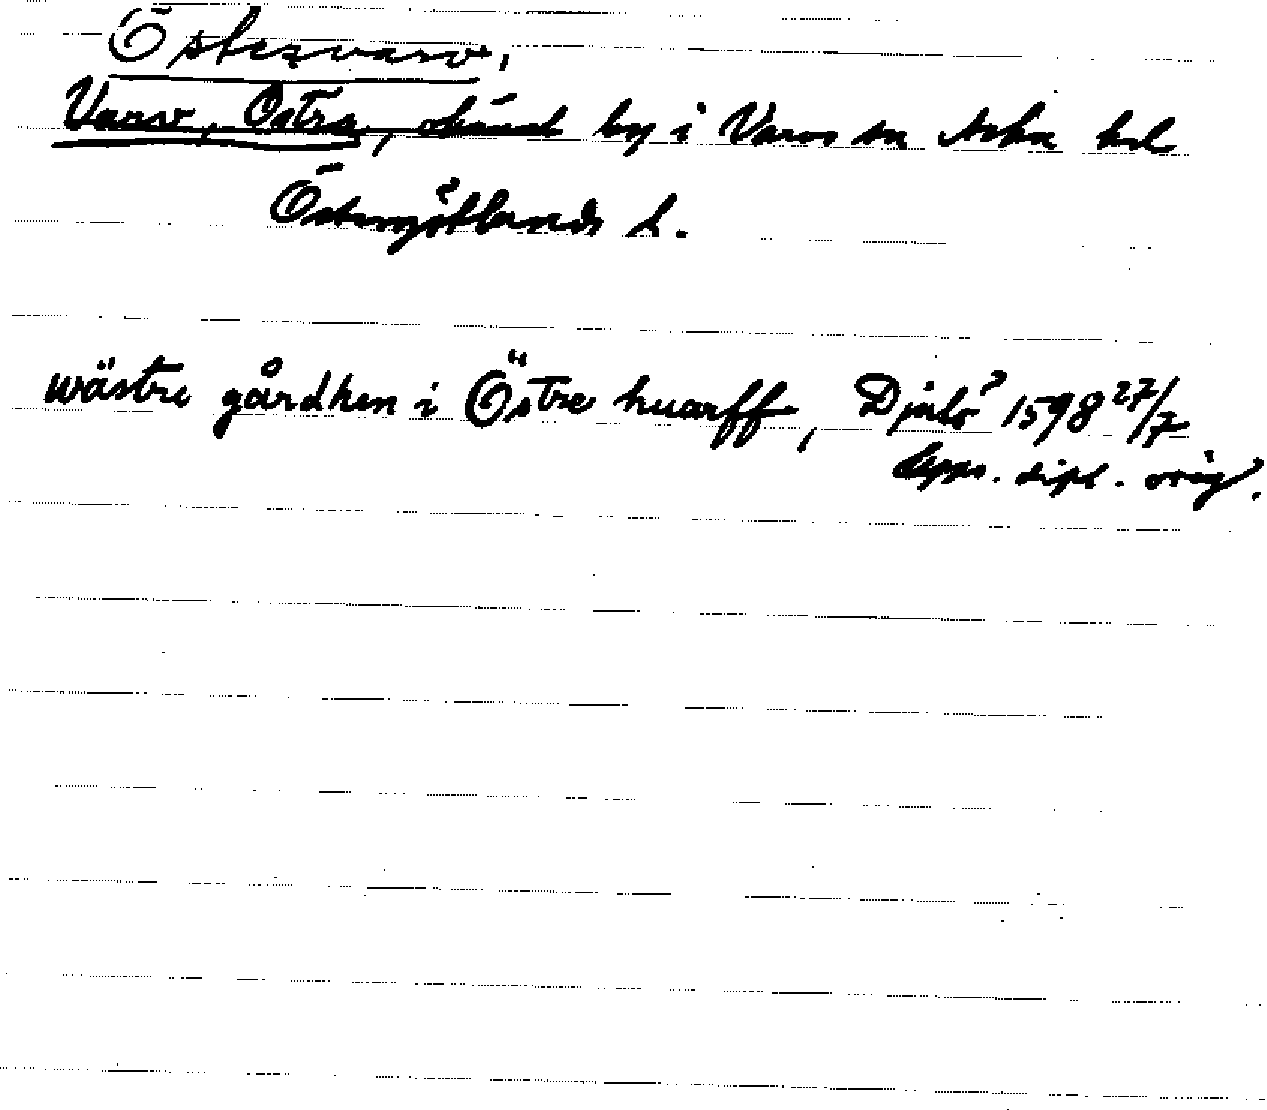 Östersvarv,
Varv, Östra, okänd by i Varvs sn Aska hd
Östergötlands l.
wästre gårdhen i Östre huarff, 1598 27/7
dipl. orig.